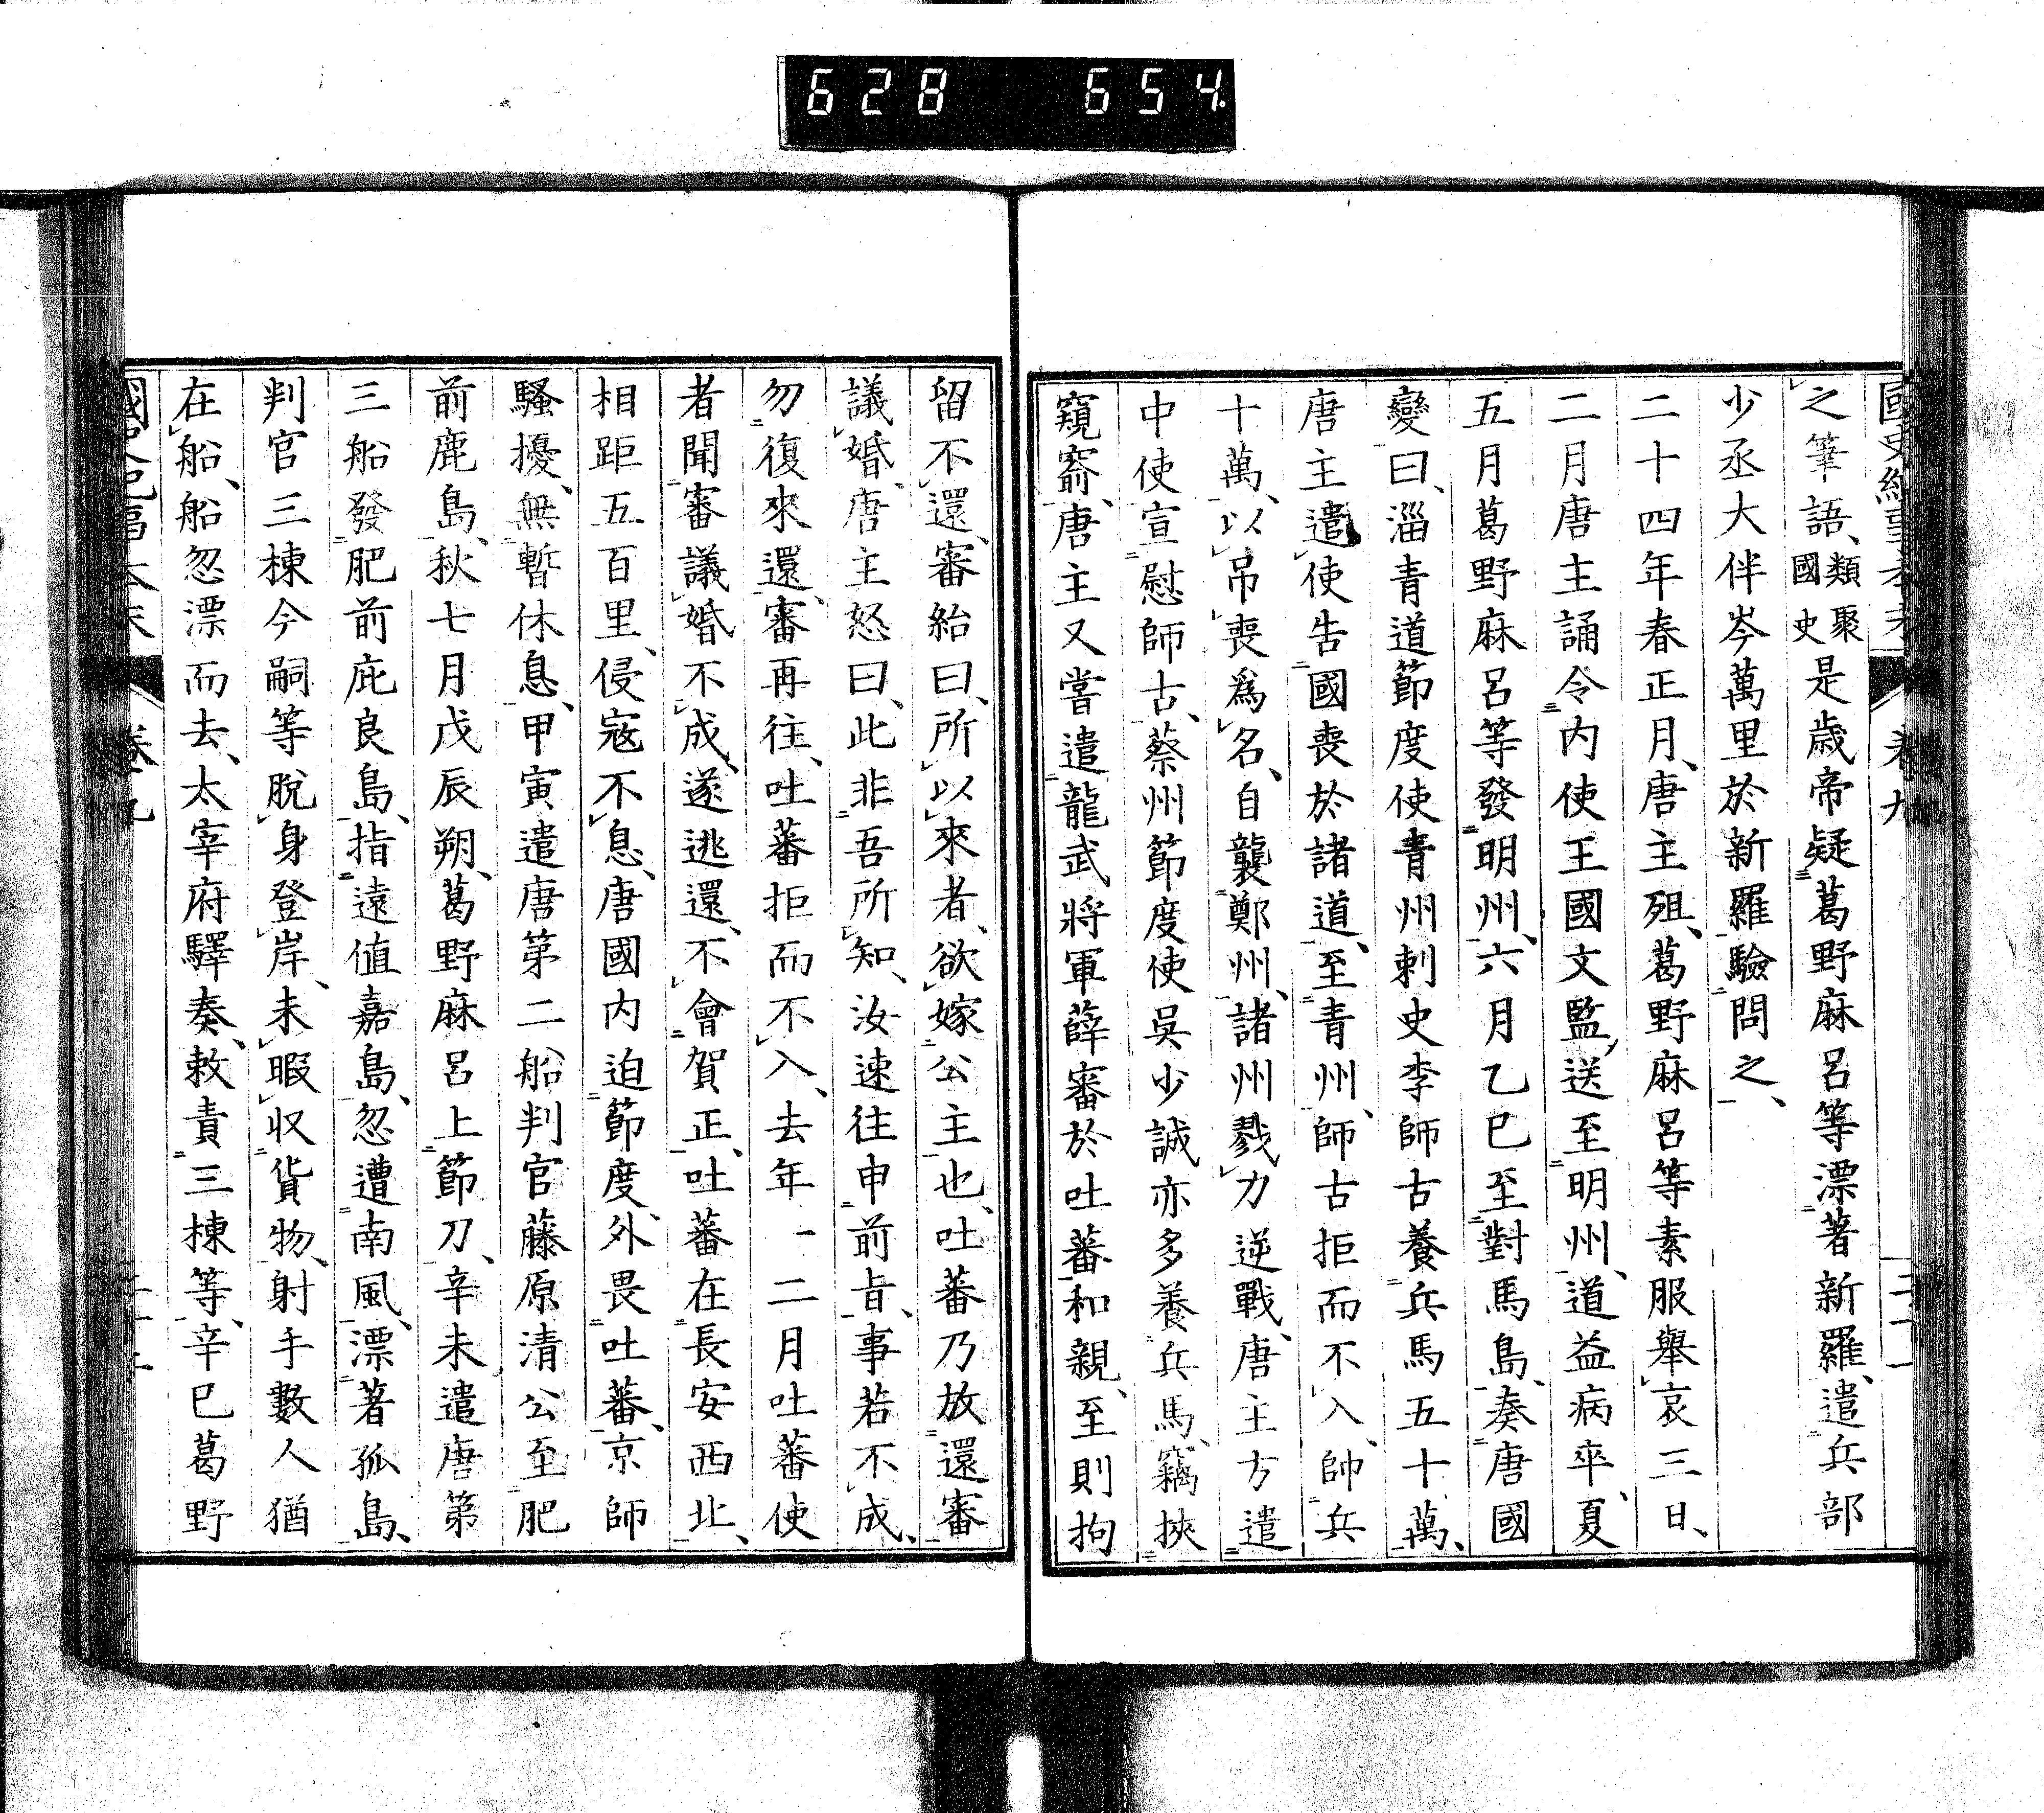 628 654
國史紀事本末 卷九
之筆語、類聚國史是歳帝疑葛野麻呂等漂著新羅、遣兵部
少丞大伴岑萬里於新羅驗問之、
二十四年春正月、唐主殂、葛野麻呂等素服舉哀三日、
二月唐主誦令内使王國文監送至明州、道益病卒、夏
五月葛野麻呂等發明州、六月乙巳至對馬島、奏唐國
變曰、淄青道節度使青州刺史李師古養兵馬五十萬、
唐主遣使告國喪於諸道、至青州、師古拒而不入、帥兵
十萬、以吊喪爲名、自襲鄭州、諸州戮力逆戰、唐主方遣
中使宣慰師古、蔡州節度使吳少誠亦多養兵馬、竊挾
窺窬、唐主又嘗遣龍武將軍薛審於吐蕃和親、至則拘
留不還、審紿曰、所以來者、欲嫁公主也、吐蕃乃放還審
議婚、唐主怒曰、此非吾所知、汝速往申前旨、事若不成、
勿復來還、審再往、吐蕃拒而不入、去年十二月吐蕃使
者聞審議婚不成、遂逃還、不會賀正、吐蕃在長安西北、
相距五百里、侵寇不息、唐國内迫節度、外畏吐蕃、京師
騷擾、無暫休息、甲寅遣唐第二船判官藤原清公至肥
前鹿島、秋七月戊辰朔、葛野麻呂上節刀、辛未遣唐第
三船發肥前庇良島、指遠値嘉島、忽遭南風、漂著孤島、
判官三棟今嗣等脫身登岸、未暇収貨物、射手數人猶
在船、船忽漂而去、太宰府驛奏、敕責三棟等、辛巳葛野